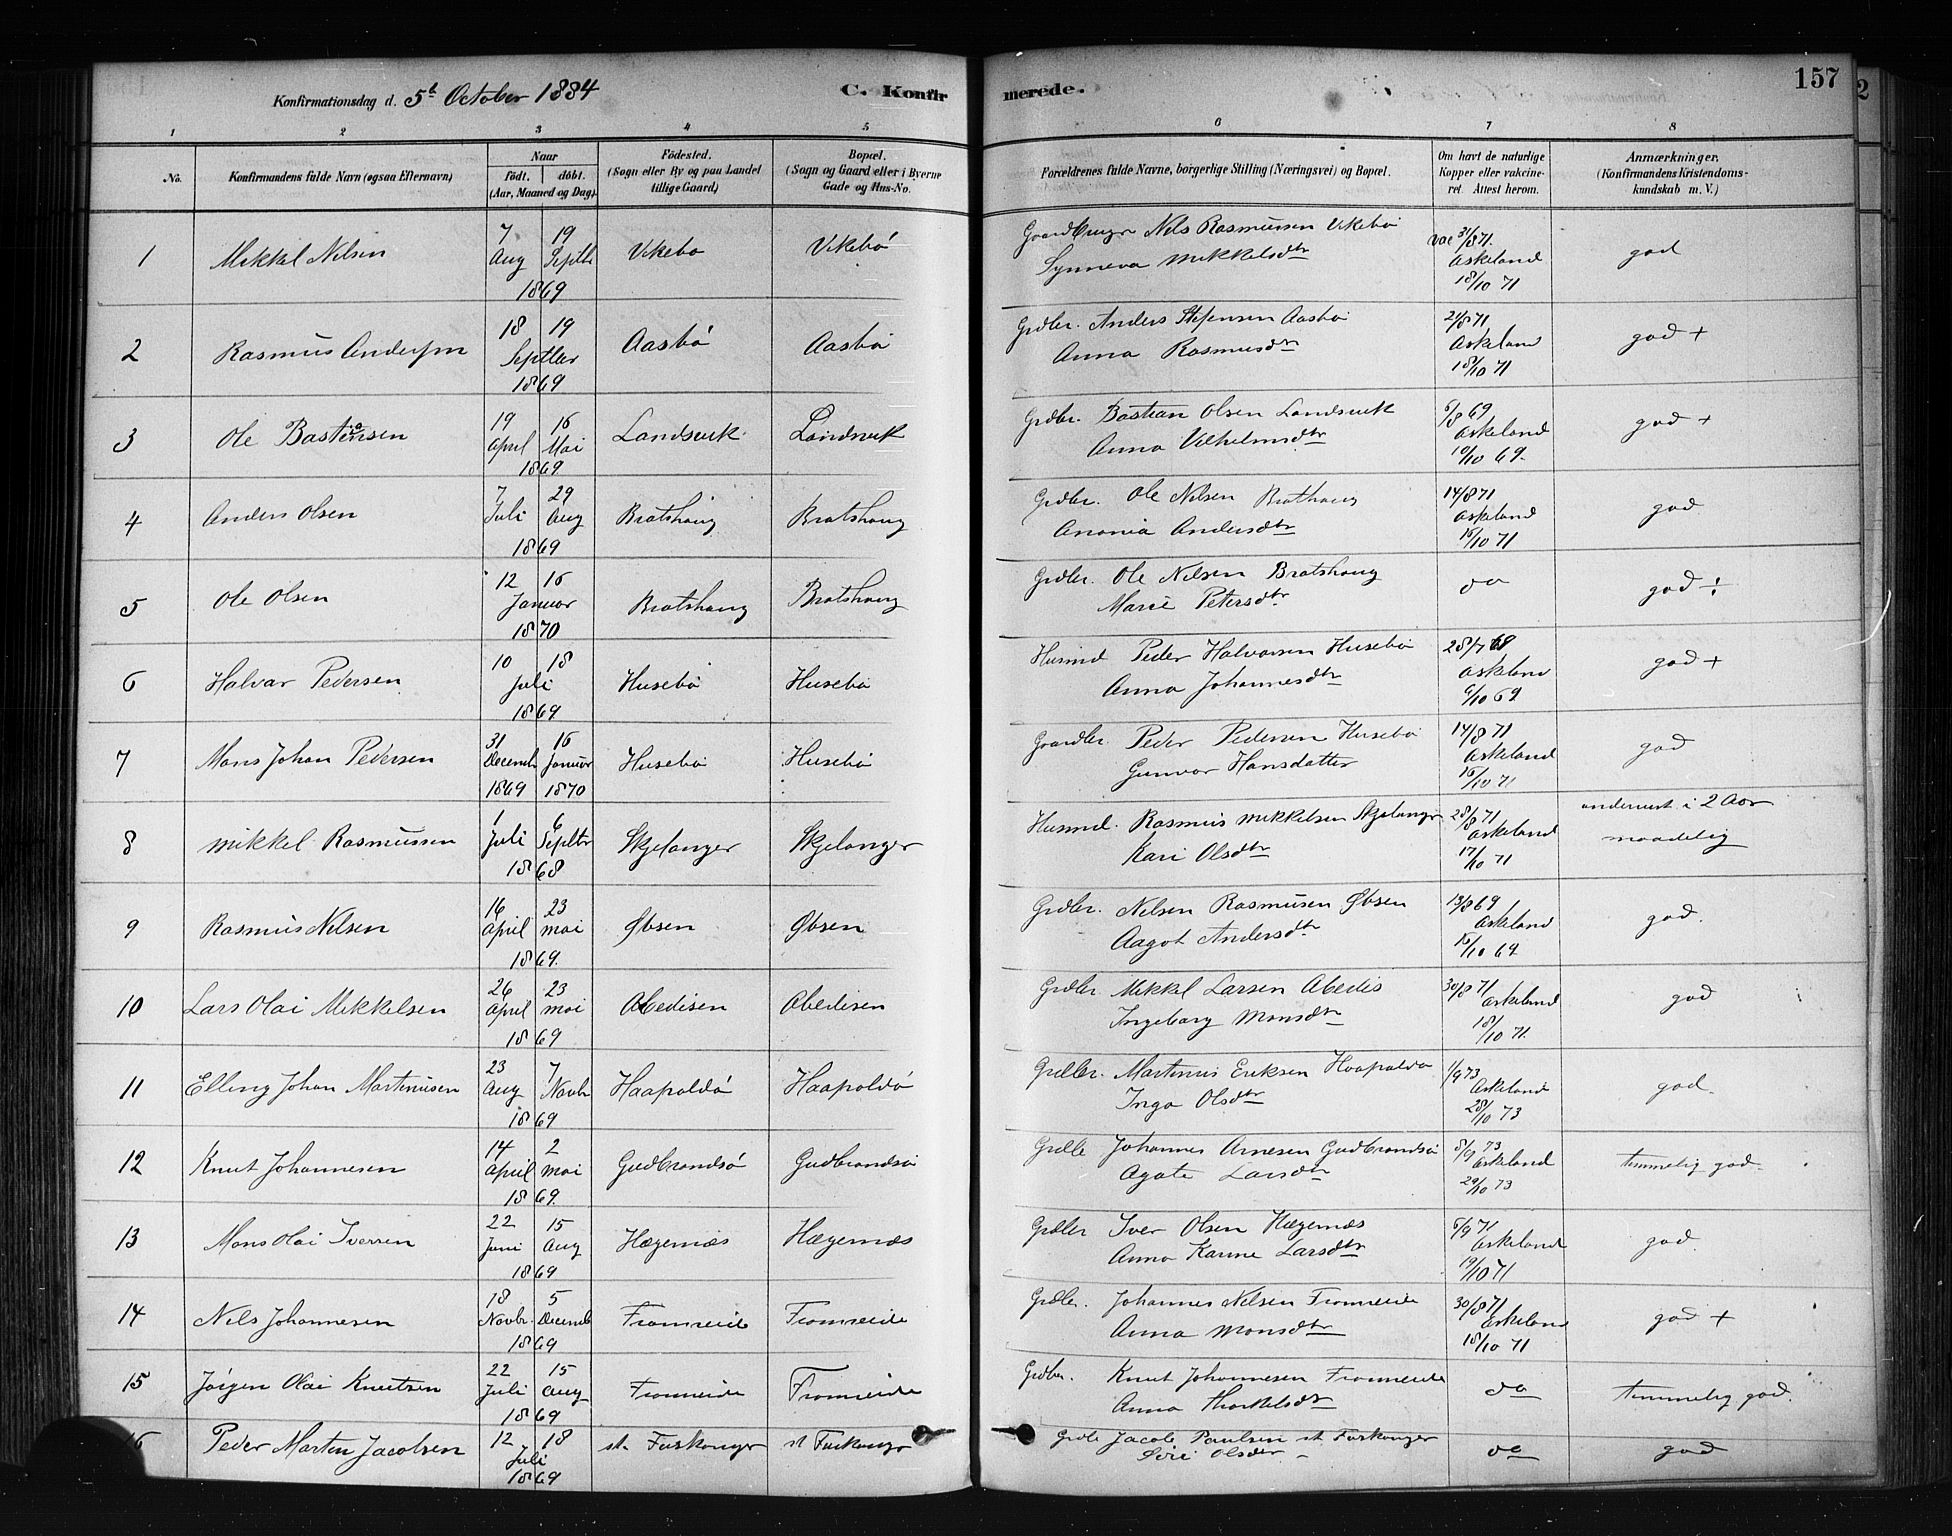 Konfirmationsdag d. 5t October 1884 C. Konfir merede. 157
1 2 3 4 5 6 7 8
No. Konfirmandens fulde Navn (ogsaa Efternavn) Naar født. døbt. (Aar, Maaned og Dag). Fødested. (Sogn eller By og paa Landet tillige Gaard.) Bopæl. (Sogn og Gaard eller i Byerne Gade og Hus-No. Forældrenes fulde Navne, borgerlige Stilling (Næringsvei) og Bopæl. Om havt de naturlige Kopper eller vakcineret. Attest herom. Anmærkninger. (Konfirmandens Kristendomskundskab m. V.)
1 Mikkel Nilsen 7 Aug 19 Septbr 1869 Vikebø Vikebø Gaardbruger Nils Rasmussen Vikebø
Synneva Mikkelsdtr vac 31/8 71. Askeland 18/10 71 god
2 Rasmus Andersen 18 19 Septbr 1869 Aasbø Aasbø Grdbr. Anders Stefensen Aasbø
Anna Rasmusdtr 21/8 71 Askeland 18/10 71 god +
3 Ole Bastiansen 19 April 16 Mai 1869 Landsvik Landsvik Grdbr. Bastian Olsen Landsvik
Anna Vilhelmsdtr 6/8 69 Askeland 10/10 69. god +
4 Anders Olsen 7 Juli 29 Aug 1869 Bratshaug Bratshaug Grdbr. Ole Nilsen Bratshaug
Anania Andersdtr 14/8 71 Askeland 16/10 71 god
5 Ole Olsen 12 16 Januar 1870 Bratshaug Bratshaug Grdbr. Ole Nilsen Bratshaug
Marie Petersdtr do god ÷
6 Halvar Pedersen 10 18 Juli 1869 Husebø Husebø Husmd Peder Halvorsen Husebø
Anna Johannesdtr 28/7 68 Askeland 6/10 69 god +
7 Mons Johan Pedersen 31 Decemb 1869 16 Januar 1870 Husebø Husebø Gaardbr. Peder Pedersen Husebø
Gunvor Hansdatter 14/8 71 Askeland 16/10 71 god
8 Mikkel Rasmussen 1 Juli 6 Septbr 1868 Skjelanger Skjelanger Husmd. Rasmus Mikkelsen Skjelanger
Kari Olsdtr 28/8 71 Askeland 17/10 71 undervist i 2 Aar maadelig
9 Rasmus Nilsen 16 April 23 Mai 1869. Øbsen Øbsen Grdbr. Nilsen Rasmusen Øbsen
Aagot Andersdtr 13/8 69 Askeland 16/10 69 god.
10 Lars Olai Mikkelsen 26 April 23 Mai 1869 Abedisen Abedisen Grdbr. Mikkel Larsen Abedis
Ingeborg Monsdtr 30/8 71 Askeland 18/10 71. god
11 Elling Johan Martinusen 23 Aug 7 Novbr 1869 Haapoldø Haapoldø Grdbr. Martinus Eriksen Haapoldø
Inga Olsdtr 1/9 73 Askeland 28/10 73 god.
12 Knut Johannesen 14 April 2 Mai 1869. Gudbrandsø Gudbrandsø Grdb Johannes Arnesen Gudbrandsø
Agate Larsdtr 8/9 73 Askeland 29/10 73 temmelig god.
13 Mons Olai Iversen 22 Juni 15 Aug 1869 Hægernæs Hægernæs Grdbr Iver Olsen Hægernæs
Anna Karine Larsdtr 6/9 71 Askeland 19/10 71 god.
14 Nils Johannesen 18 Novbr. 5 Decemb 1869 Fromreide Fromreide Grdbr. Johannes Nilsen Fromreide
Anna Monsdtr 30/8 71 Askeland 18/10 71 god +
15 Jørgen Olai Knutsen 22 Juli 15 Aug 1869 Fromreide Fromreide Grdbr. Knut Johannesen Fromreide
Anna Thorkelsdtr do temmelig god.
16 Peder Martin Jacobsen 12 18 Juli 1869 st. Fuskanger st Fuskanger Grdb Jacob Paulsen st Fuskanger
Siri Olsdtr do god